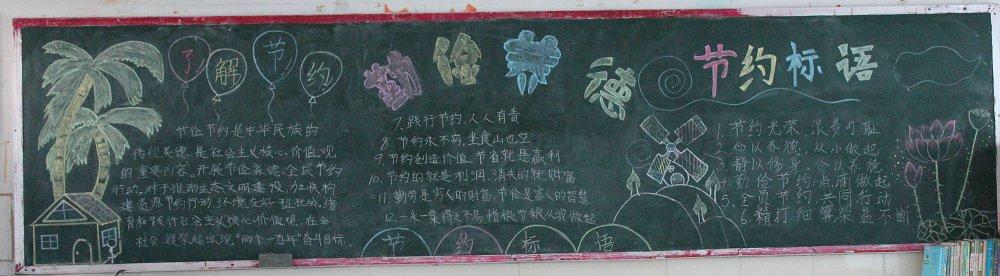 了解节约
节俭节约是中华民族的
传统美德,是社会主义核心价值观
的重要内容。开展节俭养德全民节约
行动,对于推动生态文明建设,加快构
建资源节约行动,环境友好型社会,培
育和践行社会主义核心价值观,在全
社会凝聚起实现,"两个一百年"奋斗目标,
勤俭养德
7、践行节约,人人有责
8、节约永不穷,坐食山也空
9、节约创造价值,节省就是赢利
10、节约的就是利润,消失的就是财富
11、勤劳是穷人的财富,节俭是富人的智慧
12、一米一粟得之不易,惜粮节粮从我做起
节约标语
节约标语
1、节约光荣,浪费可耻
2、俭以养德,从小做起
3、静以修身,俭以养德
4、勤俭节约,点滴做起
5、全员节约,共同行动
6、精打细算,柴盐不断